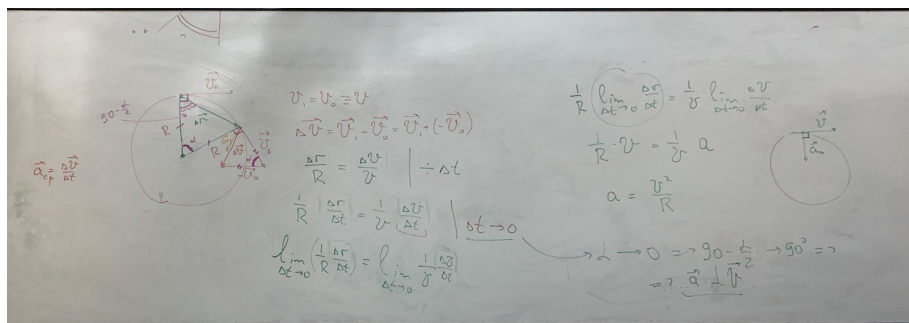 90-α/2
v⃗₀
Δr⃗
R
α
R
Δv⃗
v⃗₁
-v⃗₀
a⃗cp = Δv⃗/Δt
v₁ = v₀ ≡ v
Δv⃗ = v⃗₁ - v⃗₀ = v⃗₁ + (-v⃗₀)
Δr/R = Δv/v | ÷ Δt
1/R |Δr/Δt| = 1/v |Δv/Δt| | Δt → 0
lim Δt→0 (1/R |Δr/Δt|) = lim Δt→0 1/v |Δv/Δt|
1/R lim Δt→0 Δr/Δt = 1/v lim Δt→0 Δv/Δt
1/R · v = 1/v a
a = v²/R
α → 0 => 90 - α/2 → 90° =>
=> a⃗ ⊥ v⃗
v⃗
a⃗